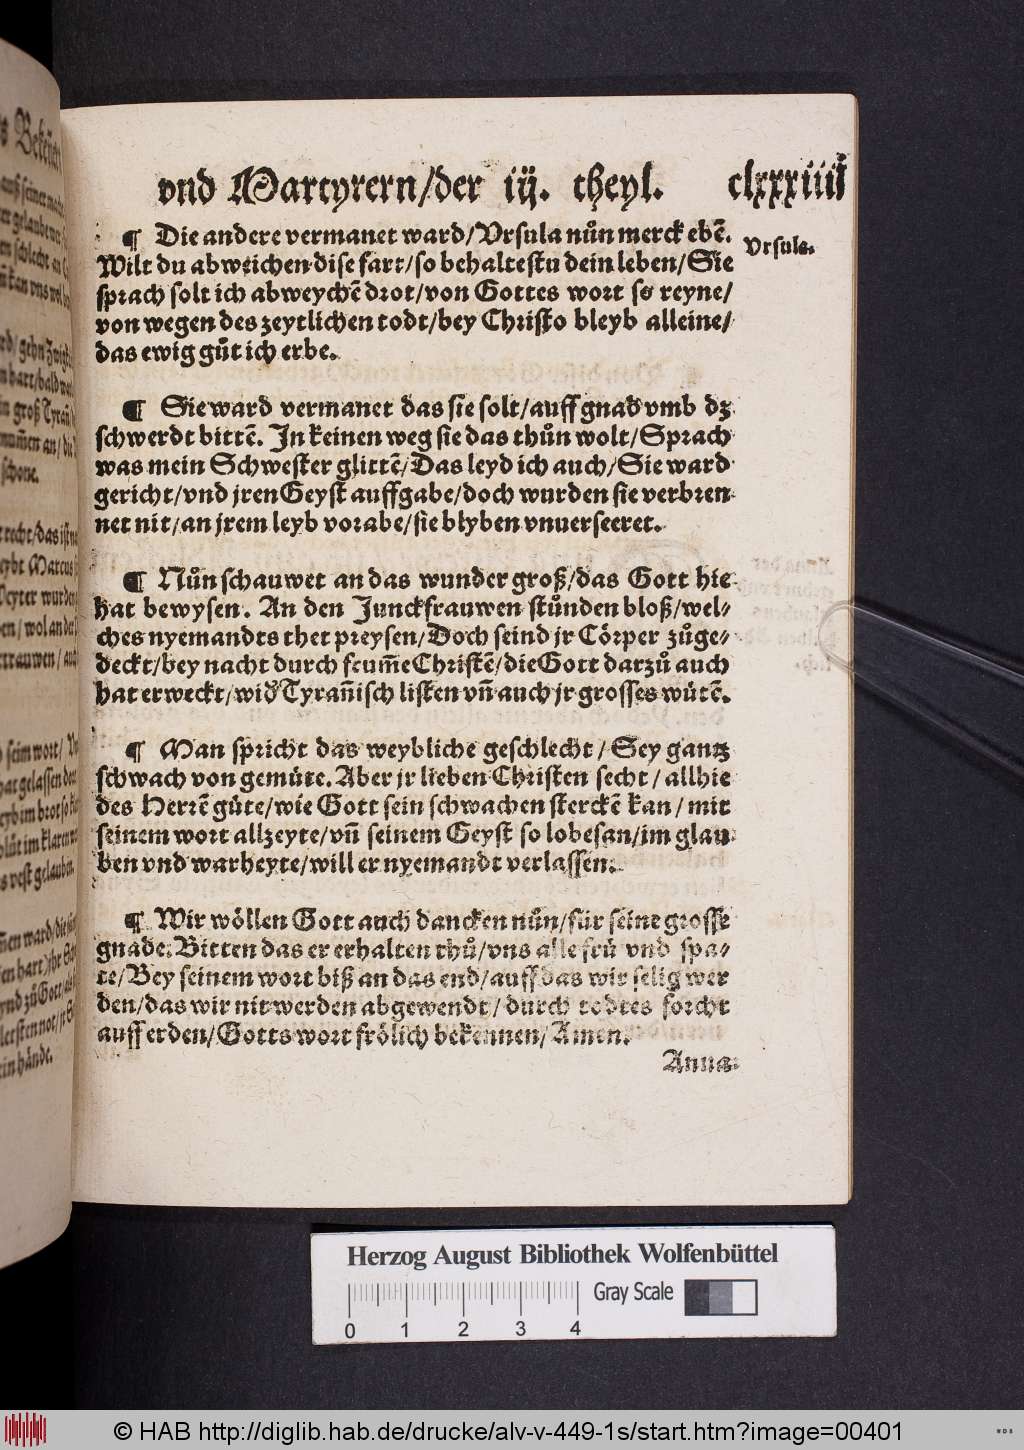 vnd Martyrern/der iij. theyl. clxxxiiii
¶ Die andere vermanet ward/Vrsula nůn merck ebẽ.
Vrsula.
Wilt du abweichen dise fart/so behaltestu dein leben/Sie
sprach solt ich abweychẽ drot/von Gottes wort so reyne/
von wegen des zeytlichen todt/bey Christo bleyb alleine/
das ewig gůt ich erbe.
¶ Sie ward vermanet das sie solt/auff gnad vmb dz
schwerdt bittẽ. In keinen weg sie das thůn wolt/Sprach
was mein Schwester glittẽ/Das leyd ich auch/Sie ward
gericht/vnd jren Geyst auffgabe/doch wurden sie verbren-
net nit/an jrem leyb vorabe/sie blyben vnuerseeret.
¶ Nůn schauwet an das wunder groß/das Gott hie
hat bewysen. An den Junckfrauwen stůnden bloß/wel-
ches nyemandts thet preysen/Doch seind jr Cörper zůge-
deckt/bey nacht durch frum̃e Christẽ/die Gott darzů auch
hat erweckt/wid' Tyrañisch listen vñ auch jr grosses wütẽ.
¶ Man spricht das weybliche geschlecht/Sey gantz
schwach von gemüte. Aber jr lieben Christen secht/allhie
des Herrẽ güte/wie Gott sein schwachen sterckẽ kan/mit
seinem wort allzeyte/vñ seinem Geyst so lobesan/im glau-
ben vnd warheyte/will er nyemandt verlassen.
¶ Wir wöllen Gott auch dancken nůn/für seine grosse
gnade: Bitten das er erhalten thů/vns alle frü vnd spa-
te/Bey seinem wort biß an das end/auff das wir selig wer
den/das wir nit werden abgewendt/durch todtes forcht
auff erden/Gotts wort frölich bekennen/Amen.
Anna.
Herzog August Bibliothek Wolfenbüttel
Gray Scale
0 1 2 3 4
© HAB http://diglib.hab.de/drucke/alv-v-449-1s/start.htm?image=00401